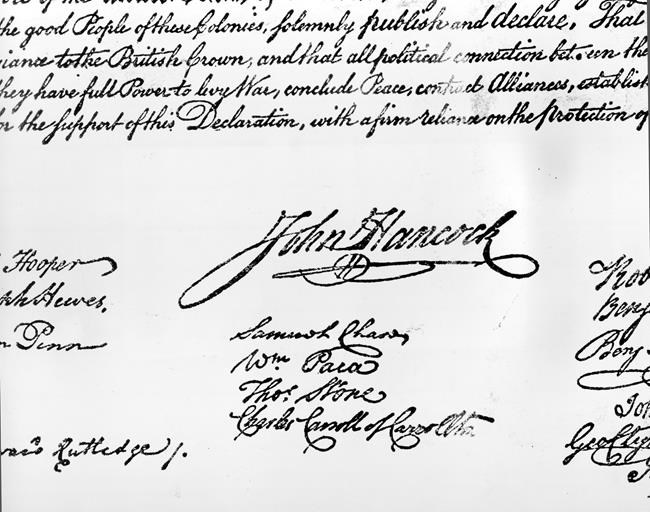 the good People of these Colonies, solemnly publish and declare, That
to the British Crown, and that all political connection between the
they have full Power to levy War, conclude Peace, contract Alliances, establish
for the support of this Declaration, with a firm reliance on the protection of
John Hancock
Hooper
Hewes,
Penn
Samuel Chase
Wm Paca
Thos Stone
Charles Carroll of Carrollton
Rutledge